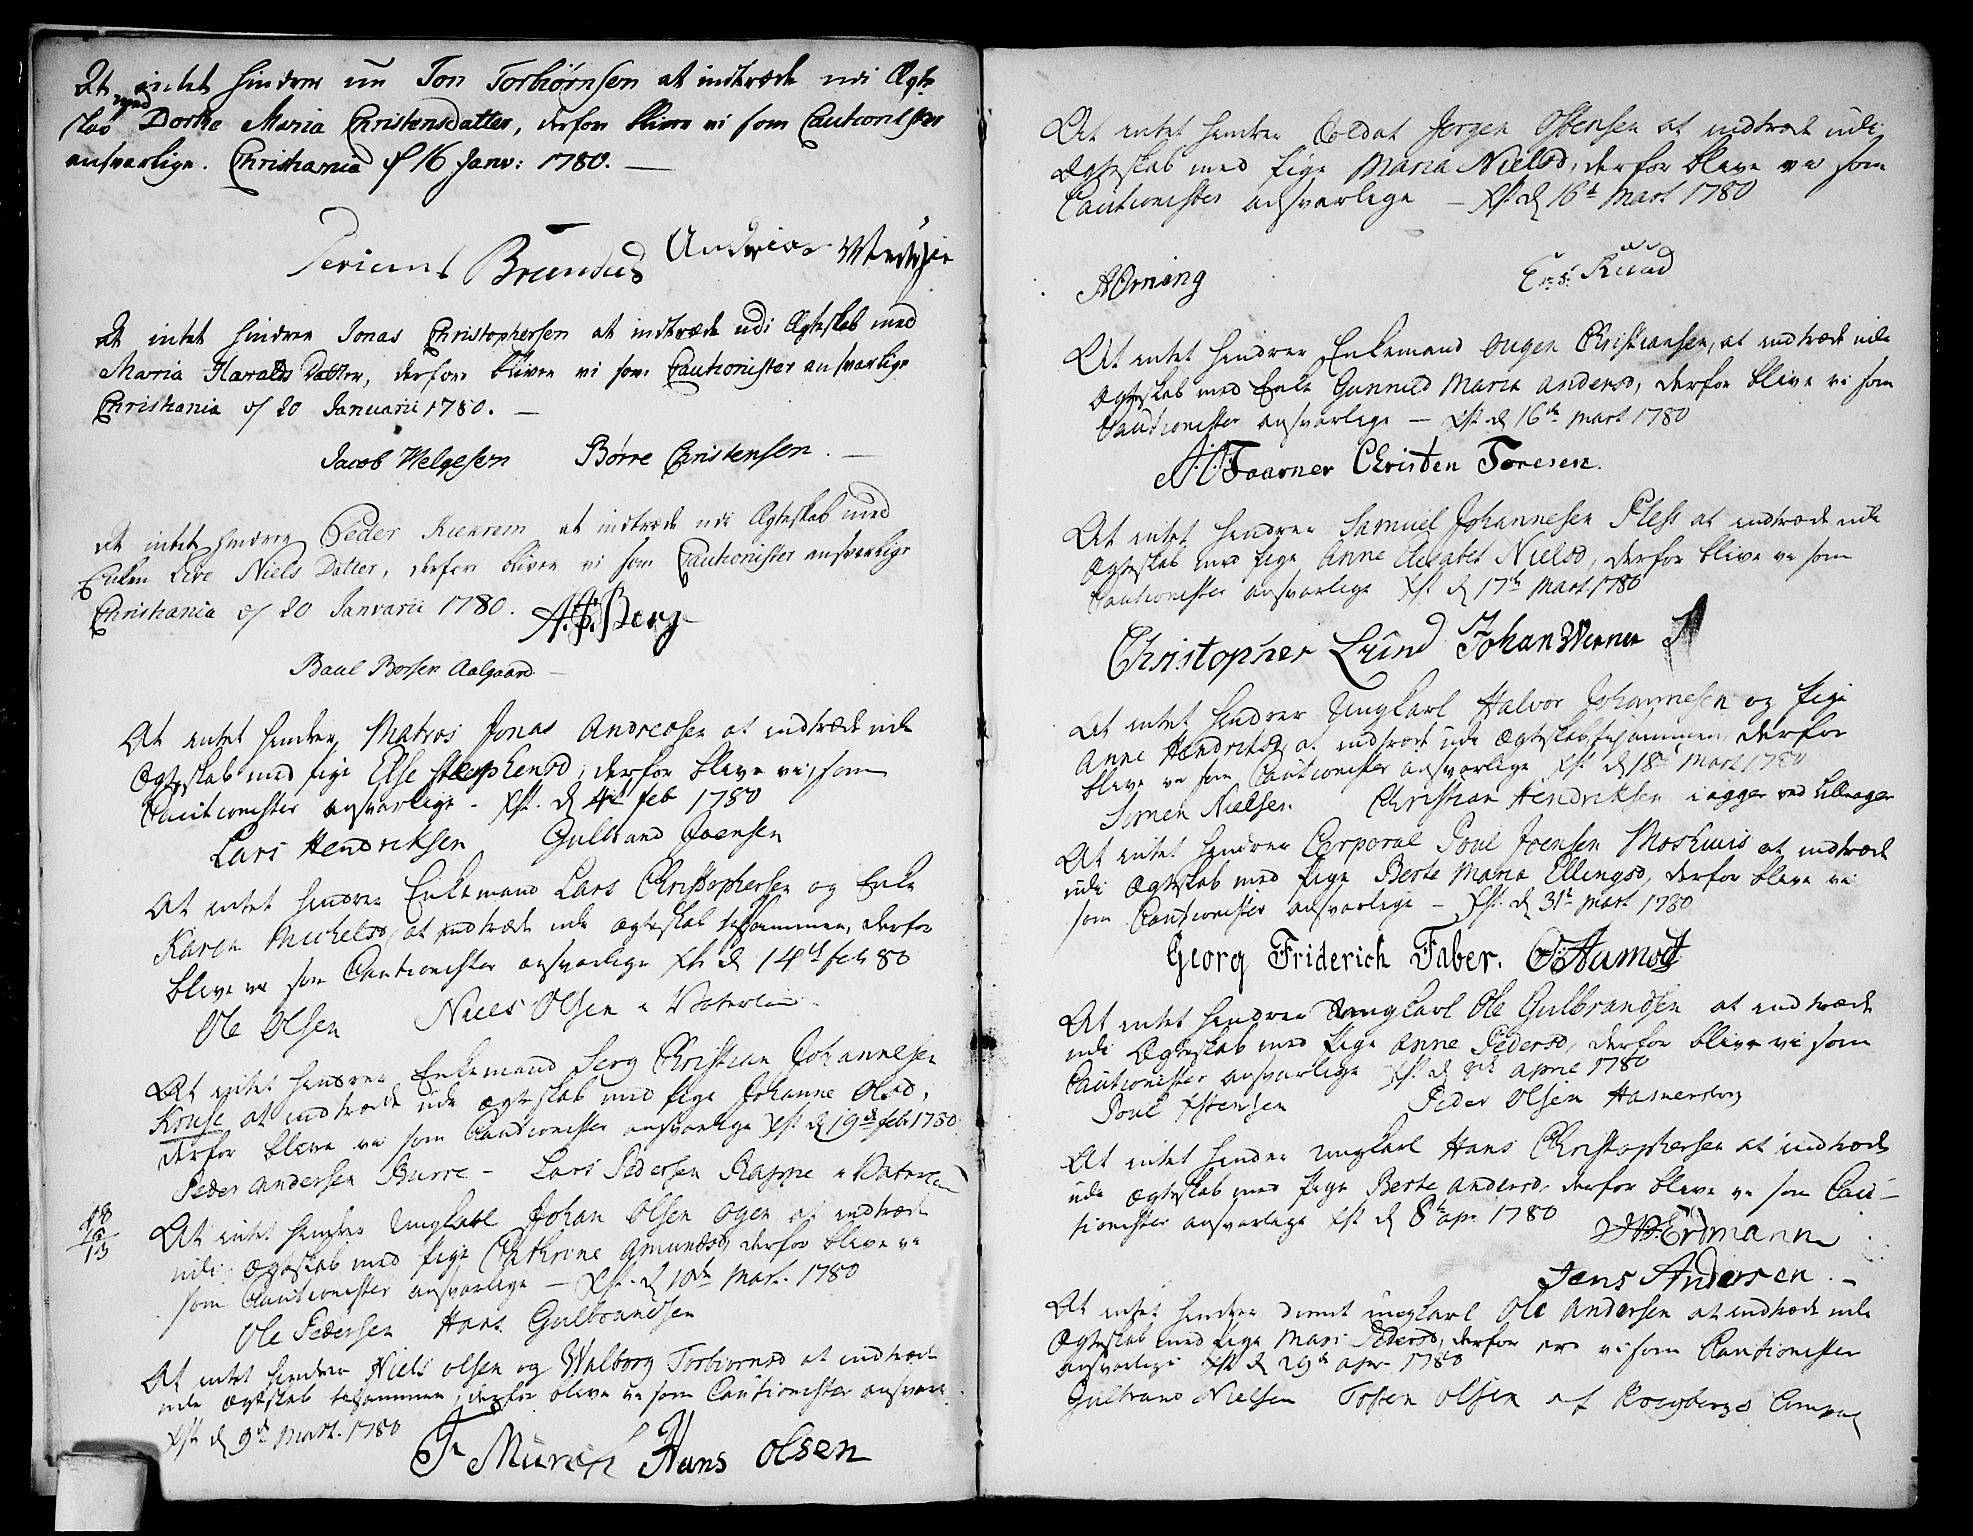 At intet hindrer un Jon Torbiørnsen at indtræde udi Ægte
skab med Dorthe Maria Christensdatter, derfor blive vi som Cautionister
ansvarlige. Christiania d 16 Janv: 1780. —
Brundud Andreas
At intet hindrer Jonas Christophersen at indtræde udi Ægteskab med
Maria Haralds Datter, derfore bliver vi som Cautionister ansvarlige
Christiania d 20 Januarii 1780. —
Jacob Helgesen Børre Christensen. —
At intet hindrer Peder at indtræde udi Ægteskab med
Enken Live Niels Datter, derfore bliver vi som Cautionister ansvarlige
Christiania d 20 Januarii 1780.
A. Berg
Baul Borsen Aalgaard —
At intet hindrer Matros Jonas Andreasen at indtræde udi
Ægteskab med pige Else Stephensd, derfor blive vi som
Cautionister ansvarlige - Xst. d 4de feb 1780
Lars Hendriksen Gulbrand Joensen
At intet hindrer Enkemand Lars Christophersen og Enke
Karen Michelsd, at indtræde udi ægteskab tilsammen, derfor
blive vi som Cautionister ansvarlige Xst. d 14de feb 80
Ole Olsen Niels Olsen i Vaterland
At intet hindrer Enkemand Serg Christian Johannesen
Kruse at indtræde udi ægteskab med pige Johanne Olsd,
derfor blive vi som Cautionister ansvarlige Xst d 19de feb 1780
Peder Andersen Burre - Lars Pedersen Rappe i Vaterland
At intet hindrer Ungkarl Johan Olsen ogen at indtræde
udi ægteskab med pige Cathrine Amundsd, derfor blive vi
som Cautionister ansvarlige — Xst. d 10de Mart. 1780
Ole Pedersen Hans Gulbrandsen
At intet hindrer Niels Olsen og Walborg Torbiørnsd at indtræde
udi ægteskab tilsammen, derfor blive vi som Cautionister ansvarl.
Xst d 9de Mart. 1780
Hans Olsen
At intet hindrer Soldat Jørgen Ostensen at indtræde udi
Ægteskab med pige Maria Nielsd, derfor blive vi som
Cautionister ansvarlige — Xst. d 16de Mart 1780
AOrning Er: S: Ruud
At intet hindrer Enkemand ougen Christiansen, at indtræde udi
Ægteskab med Enke Gunnild Maria Andersd, derfor blive vi som
Cautionister ansvarlige — Xst d 16de Mart 1780
Taarner Christen Toresen.
At intet hindrer Samuel Johannesen Pless at indtræde udi
Ægteskab med pige Anne Elisabet Nielsd, derfor blive vi som
Cautionister ansvarlige Xst. d 17de Mart. 1780
Christopher Lund Johan Werner
At intet hindrer Ungkarl Halvor Johannesen og pige
Anne Hendriksd, at indtræde udi Ægteskab tilsammen, derfor
blive vi som Cautionister ansvarlige Xst d 18de Mart 1780
Simen Nielsen Christian Hendriksen
At intet hindrer Corporal Poul Joensen Moshuus at indtræde
udi Ægteskab med pige Berte Maria Ellingsd, derfor blive vi
som Cautionister ansvarlige — Xst. d 31te Mart 1780
Georg Friderich Faber. O:Aamodt
At intet hindrer Ungkarl Ole Gulbrandsen at indtræde
udi Ægteskab med pige Anne Pedersd, derfor blive vi som
Cautionister ansvarlige Xst d April 1780
Poul Peder Olsen Hamersborg
At intet hindrer Ungkarl Hans Christophersen at indtræde
udi ægteskab med pige Berte Andersd, derfor blive vi som Cau-
tionister ansvarlige Xst d 8de apr. 1780
Erdmann
Jens Andersen. —
At intet hindrer dimit ungkarl Ole Andersen at indtræde udi
Ægteskab med pige Mari Pedersd, derfor ere vi som Cautionister
ansvarlige Xst d 29de apr. 1780
Gulbrand Nielsen Tosten Olsen af